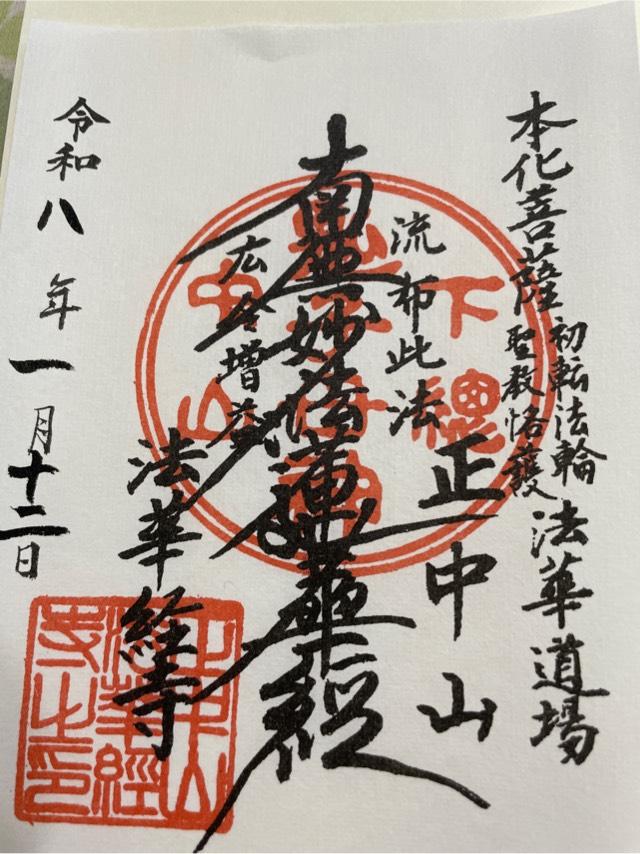 本化菩薩
初転法輪
聖教恪護
法華道場
正中山
流布此法
南無妙法蓮華経
広令増益
法華経寺
令和八年一月十二日
下總
中山
正中山
法華經
寺之印